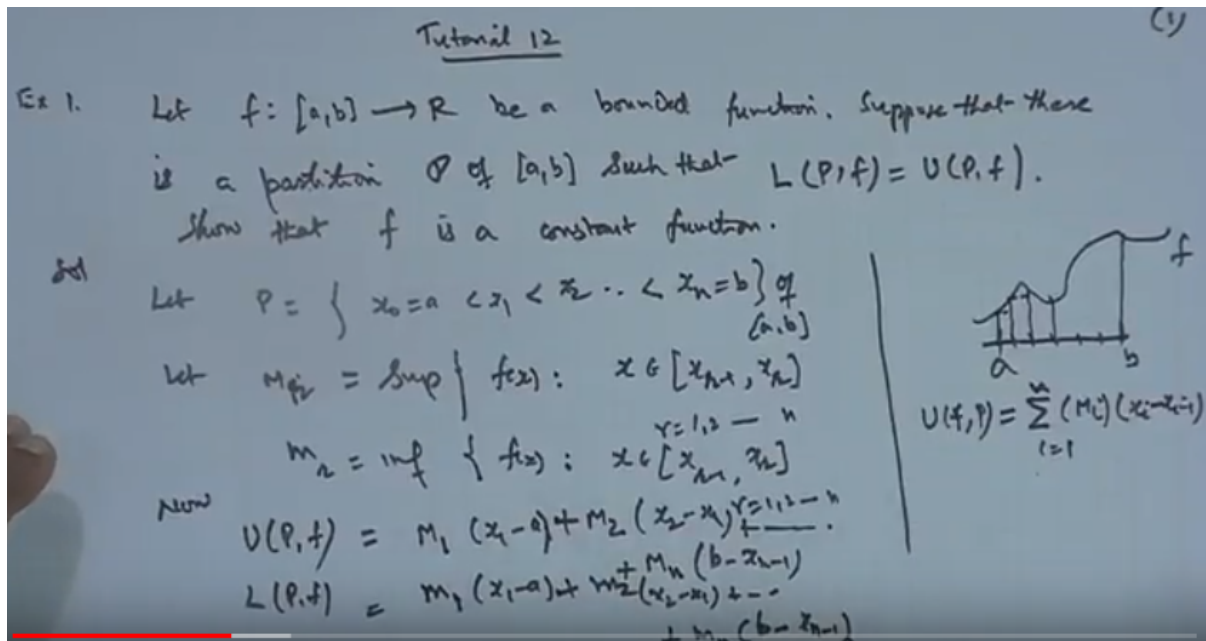 (1)
Tutorial 12
Ex 1. Let f: [a,b] → R be a bounded function. Suppose that there
is a partition P of [a,b] such that L(P,f) = U(P,f).
Show that f is a constant function.
Sol
Let P = { x₀=a < x₁ < x₂ .. < xₙ=b } of
[a,b]
Let Mᵣ = Sup { f(x) : x ∈ [xᵣ₋₁, xᵣ]
r=1,2 — n
mᵣ = inf { f(x) : x ∈ [xᵣ₋₁, xᵣ]
r=1,2 — n
Now
U(P,f) = M₁ (x₁-a) + M₂ (x₂-x₁) + —— .
+ Mₙ (b-xₙ₋₁)
L(P,f) = m₁ (x₁-a) + m₂ (x₂-x₁) + - -
+ mₙ (b-xₙ₋₁)
f
a b
U(f,P) = Σ (Mᵢ) (xᵢ-xᵢ₋₁)
n
i=1